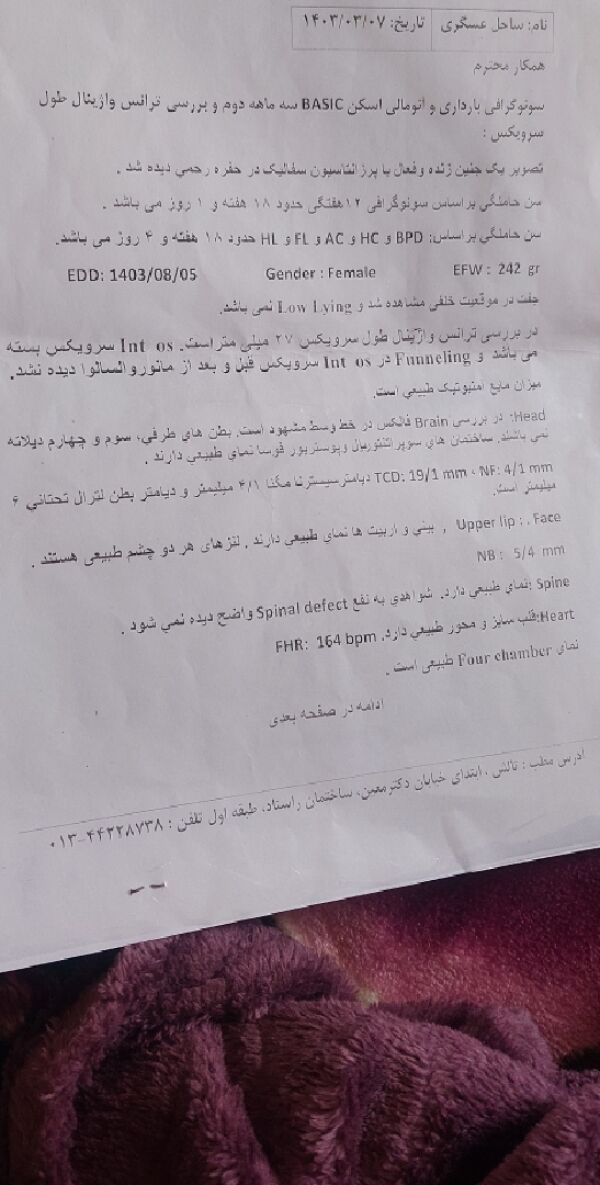 نام: ساحل عسگری تاریخ: ۱۴۰۳/۰۳/۰۷
همکار محترم
سونوگرافی بارداری و آنومالی اسکن BASIC سه ماهه دوم و بررسی ترانس واژینال طول
سرویکس :
تصویر یک جنین زنده وفعال با پرزانتاسیون سفالیک در حفره رحمی دیده شد .
سن حاملگی براساس سونوگرافی ۱۲هفتگی حدود ۱۸ هفته و ۱ روز می باشد .
سن حاملگی براساس: BPD و HC و AC و FL و HL حدود ۱۸ هفته و ۴ روز می باشد.
EFW : 242 gr Gender : Female EDD: 1403/08/05
جفت در موقعیت خلفی مشاهده شد و Low Lying نمی باشد.
در بررسی ترانس واژینال طول سرویکس ۲۷ میلی متراست. Int os سرویکس بسته
می باشد و Funneling در Int os سرویکس قبل و بعد از مانوروالسالوا دیده نشد.
میزان مایع آمنیوتیک طبیعی است.
Head: در بررسی Brain فالکس در خط وسط مشهود است. بطن های طرفی، سوم و چهارم دیلاته
نمی باشند. ساختمان های سوپراتنتوریال وپوستریور فوسا نمای طبیعی دارند .
TCD: 19/1 mm ، NF: 4/1 mm دیامترسیسترنا مگنا ۴/۱ میلیمتر و دیامتر بطن لترال تحتانی ۶
میلیمتر است.
Face : . Upper lip , بینی و اربیت ها نمای طبیعی دارند . لنزهای هر دو چشم طبیعی هستند .
NB : 5/4 mm
Spine :نمای طبیعی دارد. شواهدی به نفع Spinal defect واضح دیده نمی شود .
Heart:قلب سایز و محور طبیعی دارد. FHR: 164 bpm
نمای Four chamber طبیعی است .
ادامه در صفحه بعدی
آدرس مطب : تالش ، ابتدای خیابان دکترمعین، ساختمان راستاد، طبقه اول تلفن : ۴۴۳۲۸۷۳۸-۰۱۳